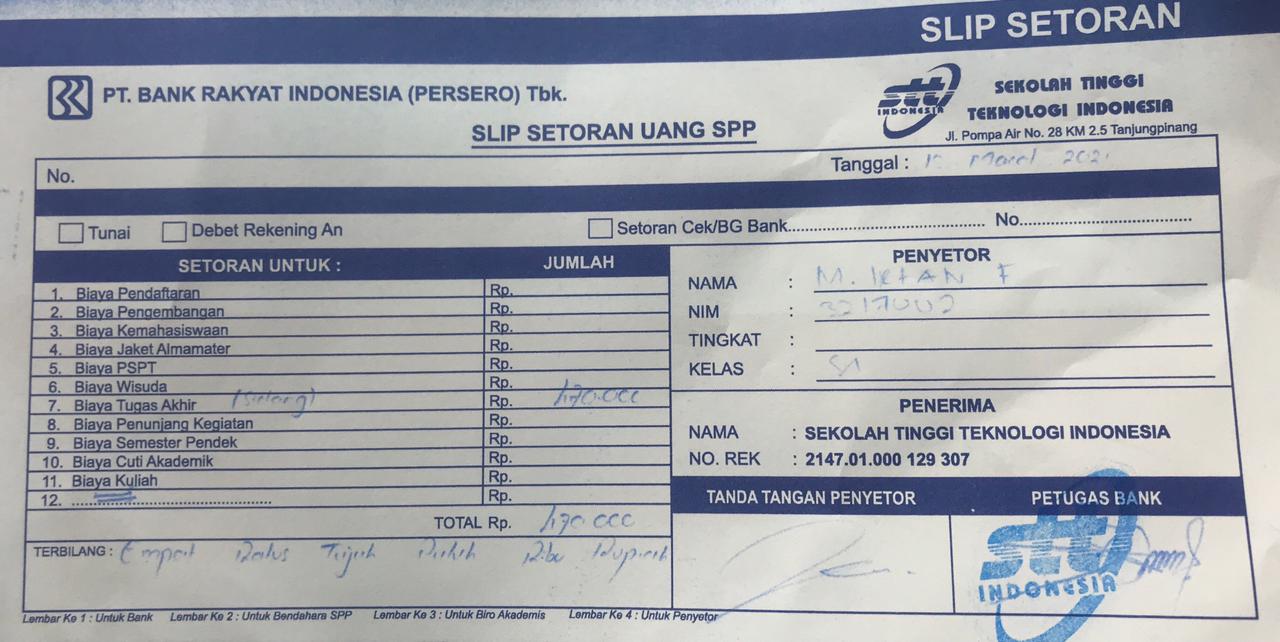 SLIP SETORAN
PT. BANK RAKYAT INDONESIA (PERSERO) Tbk.
SLIP SETORAN UANG SPP
stti
INDONESIA
SEKOLAH TINGGI
TEKNOLOGI INDONESIA
Jl. Pompa Air No. 28 KM 2.5 Tanjungpinang
No.
Tanggal : Maret
Tunai Debet Rekening An Setoran Cek/BG Bank............ No............
SETORAN UNTUK : JUMLAH
1. Biaya Pendaftaran Rp.
2. Biaya Pengembangan Rp.
3. Biaya Kemahasiswaan Rp.
4. Biaya Jaket Almamater Rp.
5. Biaya PSPT Rp.
6. Biaya Wisuda Rp.
7. Biaya Tugas Akhir (Sidang) Rp. 470.000
8. Biaya Penunjang Kegiatan Rp.
9. Biaya Semester Pendek Rp.
10. Biaya Cuti Akademik Rp.
11. Biaya Kuliah Rp.
12. ............ Rp.
TOTAL Rp. 470.000
TERBILANG : Empat Ratus Tujuh Puluh Ribu Rupiah
PENYETOR
NAMA : M. F
NIM : 3217002
TINGKAT :
KELAS :
PENERIMA
NAMA : SEKOLAH TINGGI TEKNOLOGI INDONESIA
NO. REK : 2147.01.000 129 307
TANDA TANGAN PENYETOR PETUGAS BANK
stti
INDONESIA
Lembar Ke 1 : Untuk Bank Lembar Ke 2 : Untuk Bendahara SPP Lembar Ke 3 : Untuk Biro Akademis Lembar Ke 4 : Untuk Penyetor